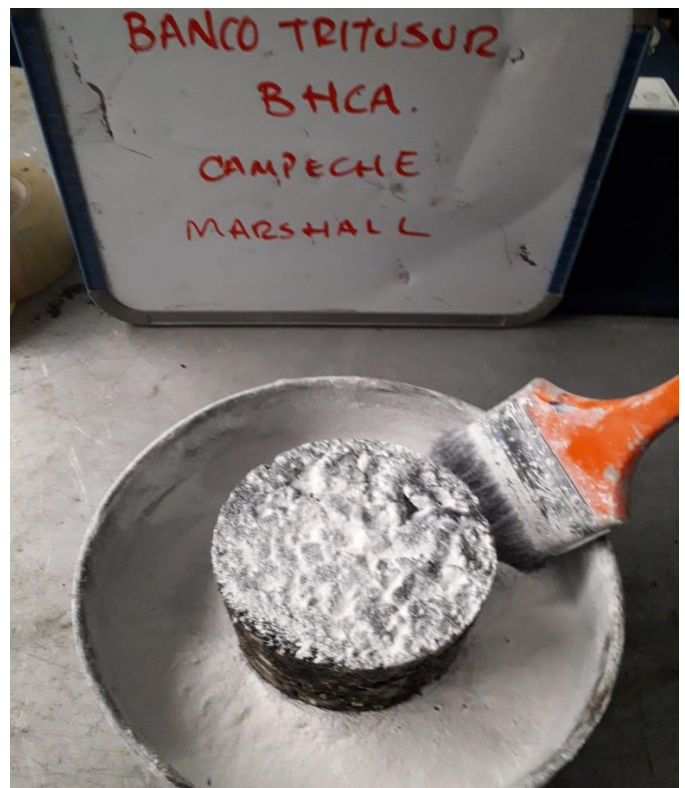 BANCO TRITUSUR
BHCA.
CAMPECHE
MARSHALL